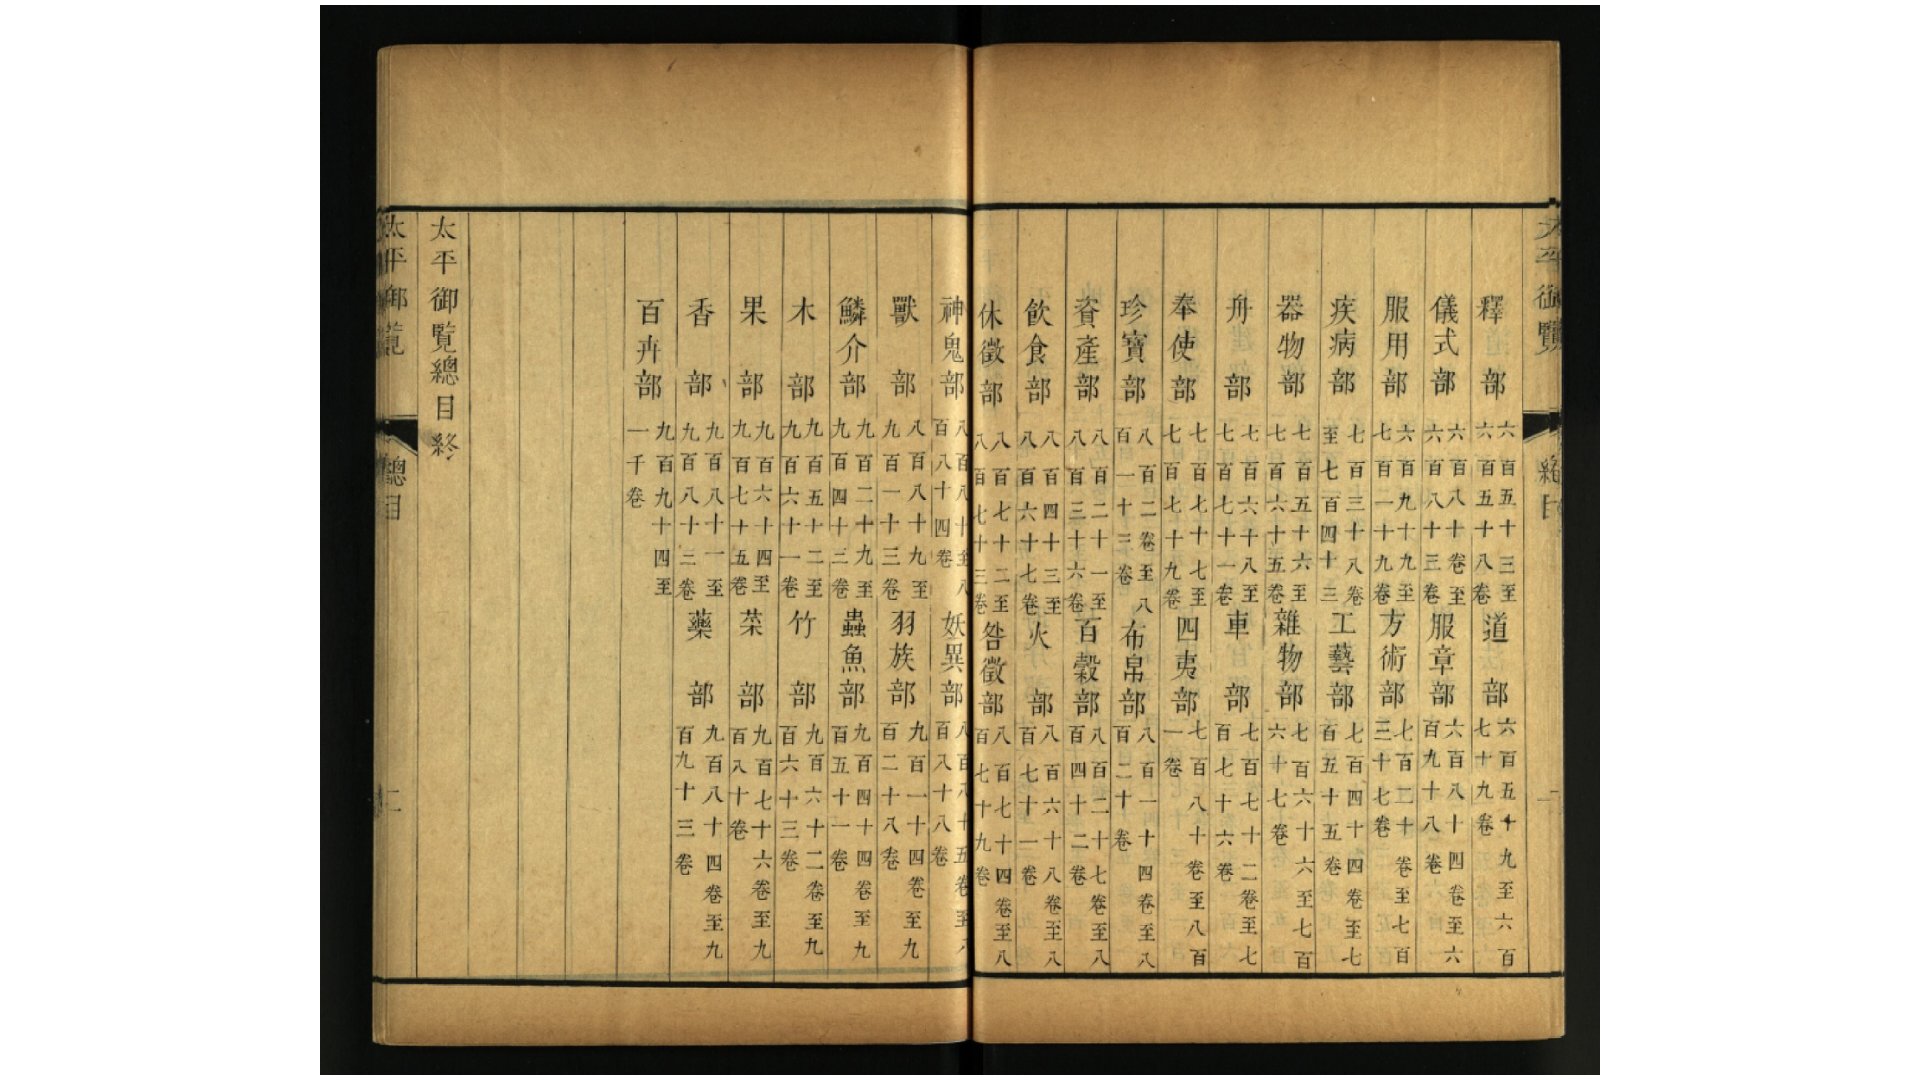 太平御覽 總目
釋部 六百五十三至六百五十八卷 道部 六百五十九至六百七十九卷
儀式部 六百八十卷至六百八十三卷 服章部 六百八十四卷至六百九十八卷
服用部 六百九十九至七百一十九卷 方術部 七百二十卷至七百三十七卷
疾病部 七百三十八卷至七百四十三 工藝部 七百四十四卷至七百五十五卷
器物部 七百五十六至七百六十五卷 雜物部 七百六十六至七百六十七卷
舟部 七百六十八至七百七十一卷 車部 七百七十二卷至七百七十六卷
奉使部 七百七十七至七百七十九卷 四夷部 七百八十卷至八百一卷
珍寶部 八百二卷至八百一十三卷 布帛部 八百一十四卷至八百二十卷
資產部 八百二十一至八百三十六卷 百穀部 八百二十七卷至八百四十二卷
飲食部 八百四十三至八百六十七卷 火部 八百六十八卷至八百七十一卷
休徵部 八百七十二至八百七十三卷 咎徵部 八百七十四卷至八百七十九卷
神鬼部 八百八十至八百八十四卷 妖異部 八百八十五卷至八百八十八卷
獸部 八百八十九至九百一十三卷 羽族部 九百一十四卷至九百二十八卷
鱗介部 九百二十九至九百四十三卷 蟲魚部 九百四十四卷至九百五十一卷
木部 九百五十二至九百六十一卷 竹部 九百六十二卷至九百六十三卷
果部 九百六十四至九百七十五卷 菜部 九百七十六卷至九百八十卷
香部 九百八十一至九百八十三卷 藥部 九百八十四卷至九百九十三卷
百卉部 九百九十四至一千卷
太平御覽總目終
太平御覽 總目 二